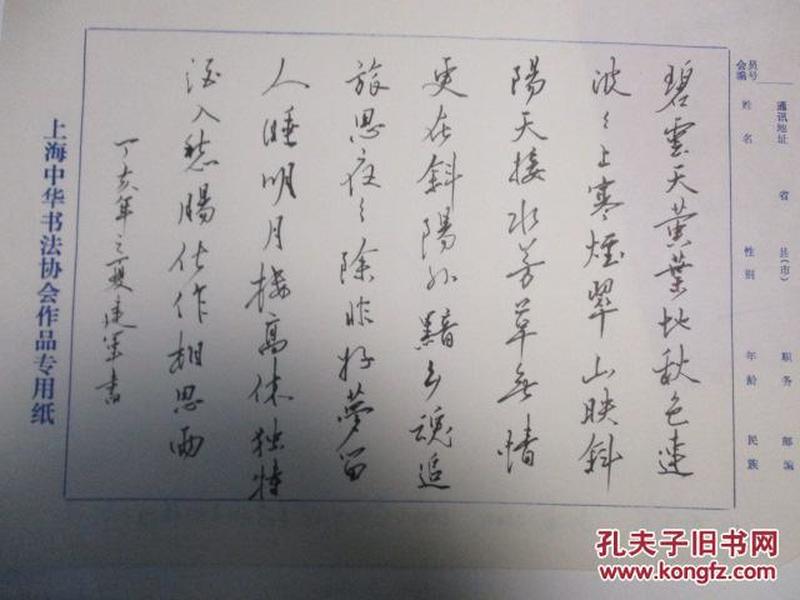 会员
编号
通讯地址 省 县(市) 职务 邮编
姓名 性别 年龄 民族
碧雲天黄葉地秋色連
波々上寒煙翠山映斜
陽天接水芳草無情
更在斜陽外黯乡魂追
旅思夜々除非好夢留
人睡明月楼高休独倚
酒入愁腸化作相思雨
丁亥年之夏建军書
上海中华书法协会作品专用纸
孔夫子旧书网
www.kongfz.com